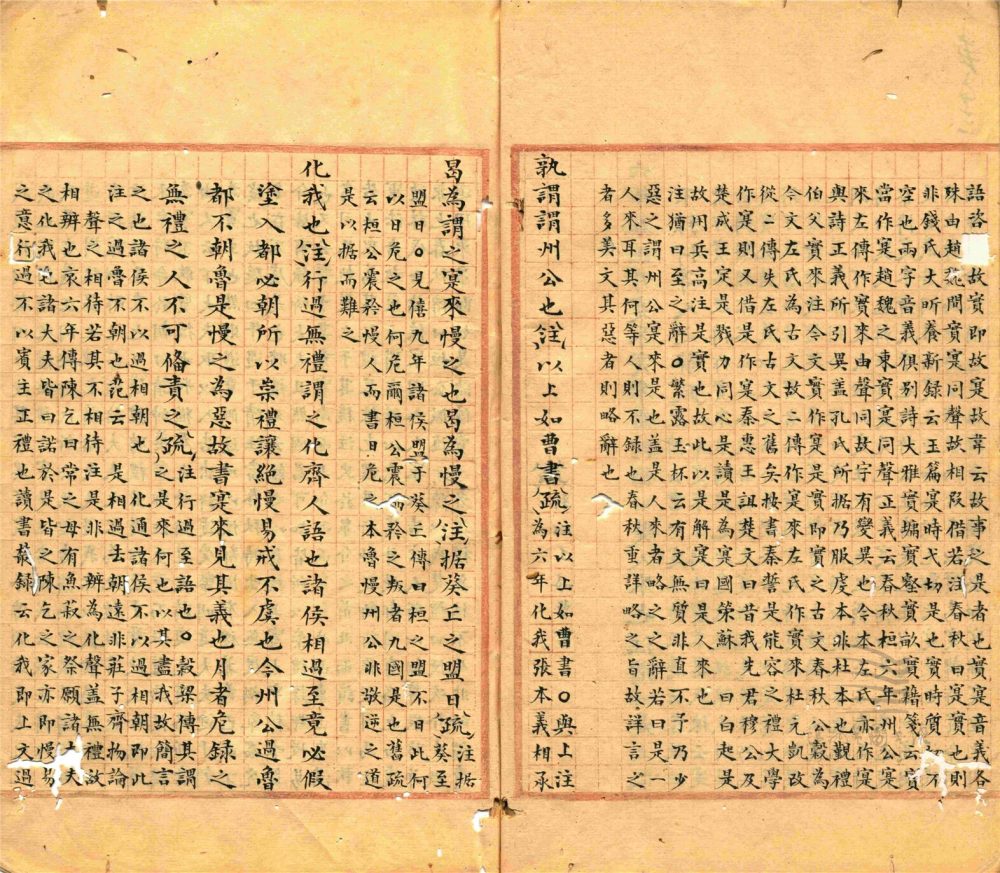 語咨□故實即寔故韋云故事之是者也實寔音義各
殊由趙魏間實寔同聲故相叚借若注春秋曰寔實也則
非錢氏大昕養新録云玉篇寔時弋切是也實時質切不
空也兩字音義俱别詩大雅實墉實壑實畝實藉箋云實
當作寔趙魏之東實寔同聲正義云春秋桓六年州公寔
來左傳作實來由聲同故字有變異也今本左氏亦作寔
與詩正義所引異蓋孔氏所据乃服虔本非杜本也覲禮
伯父實來注今文實作寔是實即實之古文春秋公穀為
今文左氏為古文故二傳作寔來左氏作實來杜元凱改
從二傳失左氏古文之舊矣按書秦誓是能容之禮大學
作寔則又借是作寔秦惠王詛楚文曰昔我先君穆公及
楚成王寔是戮力同心是讀是為寔國策蘇□曰白起是
故用兵高注是實也故此以是解寔曰是人來也
注猶曰至之辭○繁露玉杯云有文無質非直不予乃少
惡之謂州公寔來是也蓋是人來者略之之辭若曰是一
人來耳其何等人則不録也春秋重詳略之旨故詳言之
者多美文其惡者則略辭也
孰謂謂州公也注以上如曹書疏注以上如曹書○與上注
為六年化我張本義相承
曷為謂之寔來慢之也曷為慢之注据葵丘之盟日疏注据
葵至
盟日○見僖九年諸侯盟于葵丘傳曰桓之盟不日此何
以日危之也何危爾桓公震而矜之叛者九國是也舊疏
云桓公震矜慢人而書日危之本魯慢州公非敬逆之道
是以据而難之
化我也注行過無禮謂之化齊人語也諸侯相過至竟必假
塗入都必朝所以崇禮讓絕慢易戒不虞也今州公過魯
都不朝魯是慢之為惡故書寔來見其義也月者危録之
無禮之人不可備責之疏注行過至語也○穀梁傳其謂
之是來何也以其盡我故簡言
之也諸侯不以過相朝也 化通諸侯不以過相朝即此
注之過魯不朝也范云 是相過去朝遠非莊子齊物論
聲之相待若其不相待注是非 辨為化聲蓋無禮故
相辨也哀六年傳陳乞曰常之母有魚菽之祭願諸大夫
之化我也諸大夫皆曰諾於是皆之陳乞之家亦即慢易
之意行過不以賓主正禮也讀書叢録云化我即上文過